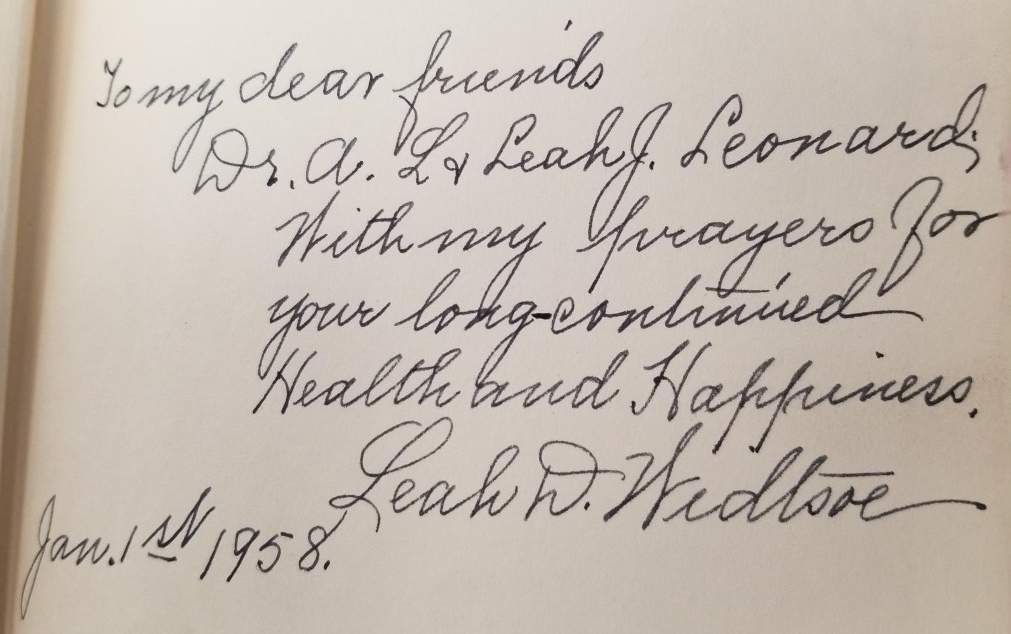 To my dear friends
Dr. A. L & Leah J. Leonard;
With my Prayers for
your long-continued
Health and Happiness.
Leah D. Widtsoe
Jan. 1st 1958.